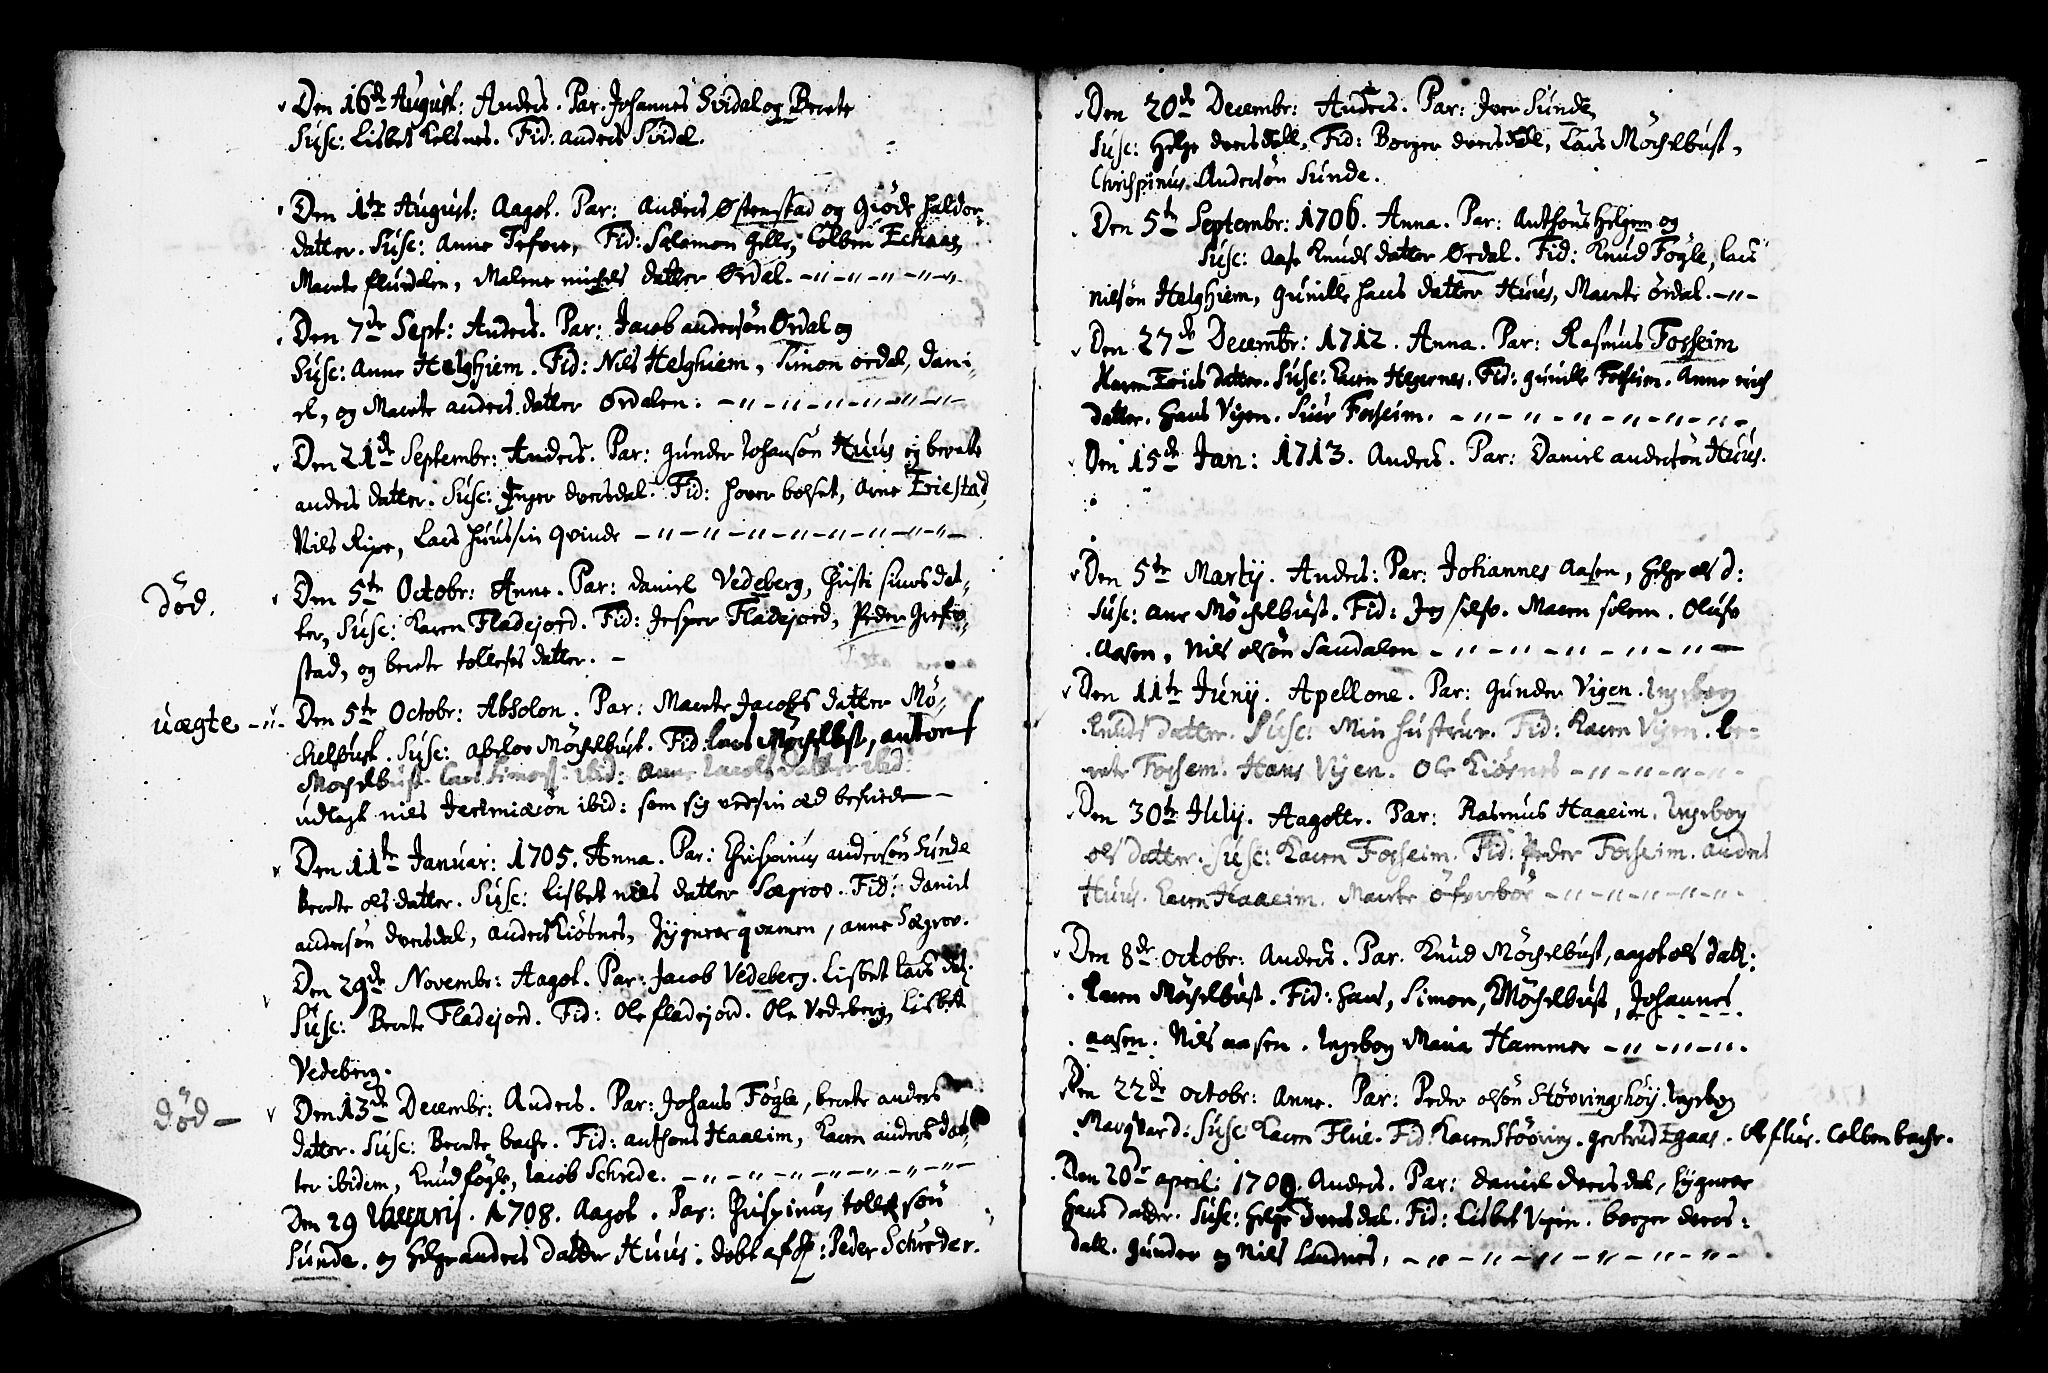 Den 16de August: Anders. Par. Johannes Svidal og Berete
Susc: Lisbet Kelsnes. Fid: anders Svidal.
Den 1te August: Aagot. Par: Anders Østenstad og Giøde haldor-
datter. Susc: Anne Tefvre, Fid: Salamon Gille, Colben Echaas,
Marete flugdalen, Malene michels datter Ørdal.
Den 7de Sept: Anders. Par: Jacob andersøn Ørdal og
Susc: Anne Helghiem. Fid: Nils Helghiem, Simon ordal, Dani-
el, og Marete anders datter Ordalen.
Den 21de Septembr: Anders. Par: Gunder Johansøn Huus og berete
anders datter. Susc: Inger dversdal. Fid: hover bolset, Arne Eriestad,
Nils Ripe, Lars huus sin qvinde
død.
Den 5te Octobr: Anne. Par: Daniel Vedeberg, Christi siurs dat-
ter, Susc: Karen Fladejord. Fid: Jesper Fladejord, Peder Grefv-
stad, og berete tollefs datter.
uægte
Den 5te Octobr: Absolon. Par: Marete Jacobs datter Mö-
chelbust. Susc: Möchelbust. Fid: lars Möchelbust, anton
Mochelbust. Lars Simons: ibid: Anne Jacobs datter ibid:
udlagt niels Jeremiæsøn ibid: som sig ved sin æd befriede
Den 11te Januar: 1705. Anna. Par: Chrispinus andersøn Sunde
berete ols datter. Susc: Lisbet nils datter Sægrov. Fid: Daniel
andersøn dversdal, anders Kiøsnes, Sygneve qvamen, anne Sægrov.
Den 29de Novembr: Aagot. Par: Jacob Vedeberg. Lisbet lars dat.
Susc: Berete Fladejord. Fid: Ole fladejord. Ole Vedeberg, Lisbet
Vedeberg.
død
Den 13de Decembr: Anders. Par: Johans Fögle, berete anders
datter. Susc: Berete bache. Fid: anthons Haaeim, Karen anders dat-
ter ibidem, Knud fögle, Jacob Schrede.
Den 29 1708. Aagot. Par: Chrispinus tollefsøn
Sunde. og Helge anders datter Huus. döbt af Hr: Peder Schreder.
Den 20de Decembr: Anders. Par: Iver Sunde
Susc: Helge dversdall, Fid: Borger dversdall, Lars Möchelbust,
Chrispinus Andersøn Sunde.
Den 5te Septembr: 1706. Anna. Par: Anthons helgem og
Susc: Aase Knuds datter Ørdal. Fid: Knud Fögle, lars
Nilsön Helghiem, Gunille hans datter Huus, Marete ördal.
Den 27de Decembr: 1712. Anna. Par: Rasmus Forseim
Karen Erics datter. Susc: Karen Hegernes. Fid: Gunille Forseim. Anne erich
datter. Hans Vigen. Siur Forseim.
Den 15de Jan: 1713. Anders. Par: Daniel andersøn Huus.
Den 5te Martij. Anders: Par: Johannes Aasen, Helge ols d:
Susc: ane Möchelbust. Fid: Jeg selfv. Maren solem. Oluf
Aasen, Nils olsøn Sandalen
Den 11te Junij. Apellone. Par: Gunder Vigen. Ingebog
Knuds datter. Susc: Min hustrue. Fid: Karen Vigen. be-
rete Forsem. Hans Vijen. Ole Kiösnes
Den 30te Julij. Aagotte. Par: Rasmus Haaeim. Ingebog
ols datter. Susc: Karen Forseim. Fid: Peder Forseim. anders
Huus. Karen Haaeim. Marete öfvreböe
Den 8de octobr: Anders. Par. Knud Möchelbust, aagot ols datt:
Karen Möchelbust. Fid: hans, Simon, Möchelbust, Johannes
aasen. Nils aasen. Ingebog Maria Hammer
Den 22de octobr: Anne. Par: Peder olsøn Stövringshöy. Ingebog
Marqvard: Susc: Karen Flue. Fid: Karen Stövring. Gertrud Egaas. Ole flus. Colben bache.
Den 20de april: Anders. Par: Daniel dversdal, Sygneve
Hans datter. Susc: Helge dversdal. Fid: Lisbet Vigen. borger dvers-
dall. Gunder og Nils Landnes.